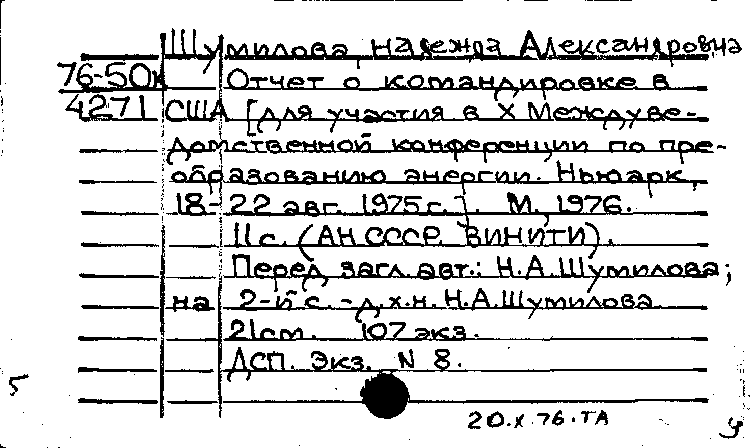 Шумилова, Надежда Александровна
76-50к Отчет о командировке в
4271 США [для участия в X Междуве-
домственной конференции по пре-
образованию энергии. Ньюарк,
18-22 авг. 1975 г.]. М., 1976.
11 с. (АН СССР. ВИНИТИ).
Перед загл. авт.: Н.А.Шумилова;
на 2-й с. - д.х.н. Н.А.Шумилова
21 см. 107 экз.
ДСП. Экз. N 8.
5
20.X.76.ТА